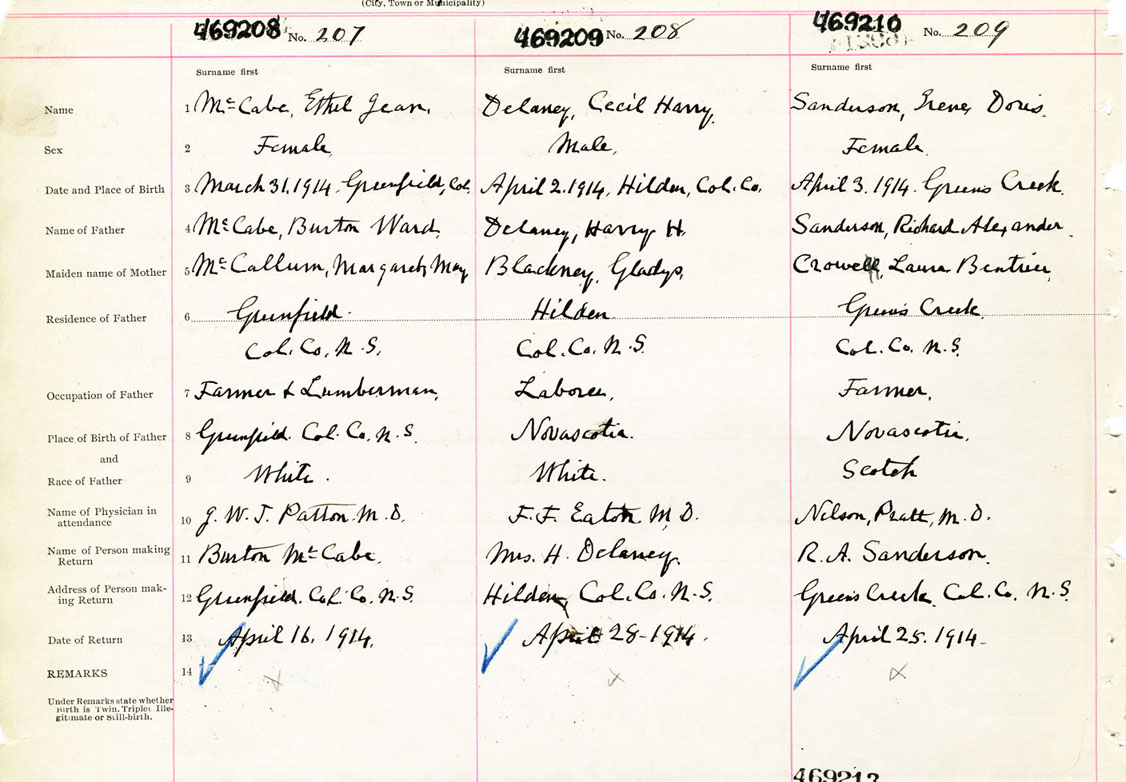 (City, Town or Municipality)
469208 No. 207 469209 No. 208 469210 No. 209
Surname first Surname first Surname first
Name 1 McCabe, Ethel Jean. Delaney, Cecil Harry. Sanderson, Irene Doris.
Sex 2 Female Male, Female.
Date and Place of Birth 3 March 31, 1914. Greenfield, Col. April 2. 1914, Hilden, Col. Co. April 3. 1914. Greens Creek.
Name of Father 4 McCabe, Burton Ward. Delaney, Harry H. Sanderson, Richard Alexander.
Maiden name of Mother 5 McCallum, Margaret May Blackney, Gladys, Crowell, Laura Beatrice,
Residence of Father 6 Greenfield. Hilden Green's Creek.
Col. Co, N. S, Col. Co. N. S. Col. Co. N. S.
Occupation of Father 7 Farmer & Lumberman, Laborer, Farmer,
Place of Birth of Father 8 Greenfield. Col. Co, N. S. Novascotia. Novascotia.
and
Race of Father 9 White. White. Scotch
Name of Physician in
attendance 10 J. W. T. Patton M. D. F. F. Eaton M, D. Nelson, Pratt, M. D.
Name of Person making
Return 11 Burton McCabe. Mrs. H. Delaney. R. A. Sanderson.
Address of Person mak-
ing Return 12 Greenfield. Col. Co. N. S. Hilden, Col. Co. N. S. Greens Creek. Col. Co. N. S.
Date of Return 13 April 16. 1914. April 28-1914. April 25. 1914-
REMARKS 14 x x x
Under Remarks state whether
Birth is Twin, Triplet Ille-
gitimate or Still-birth.